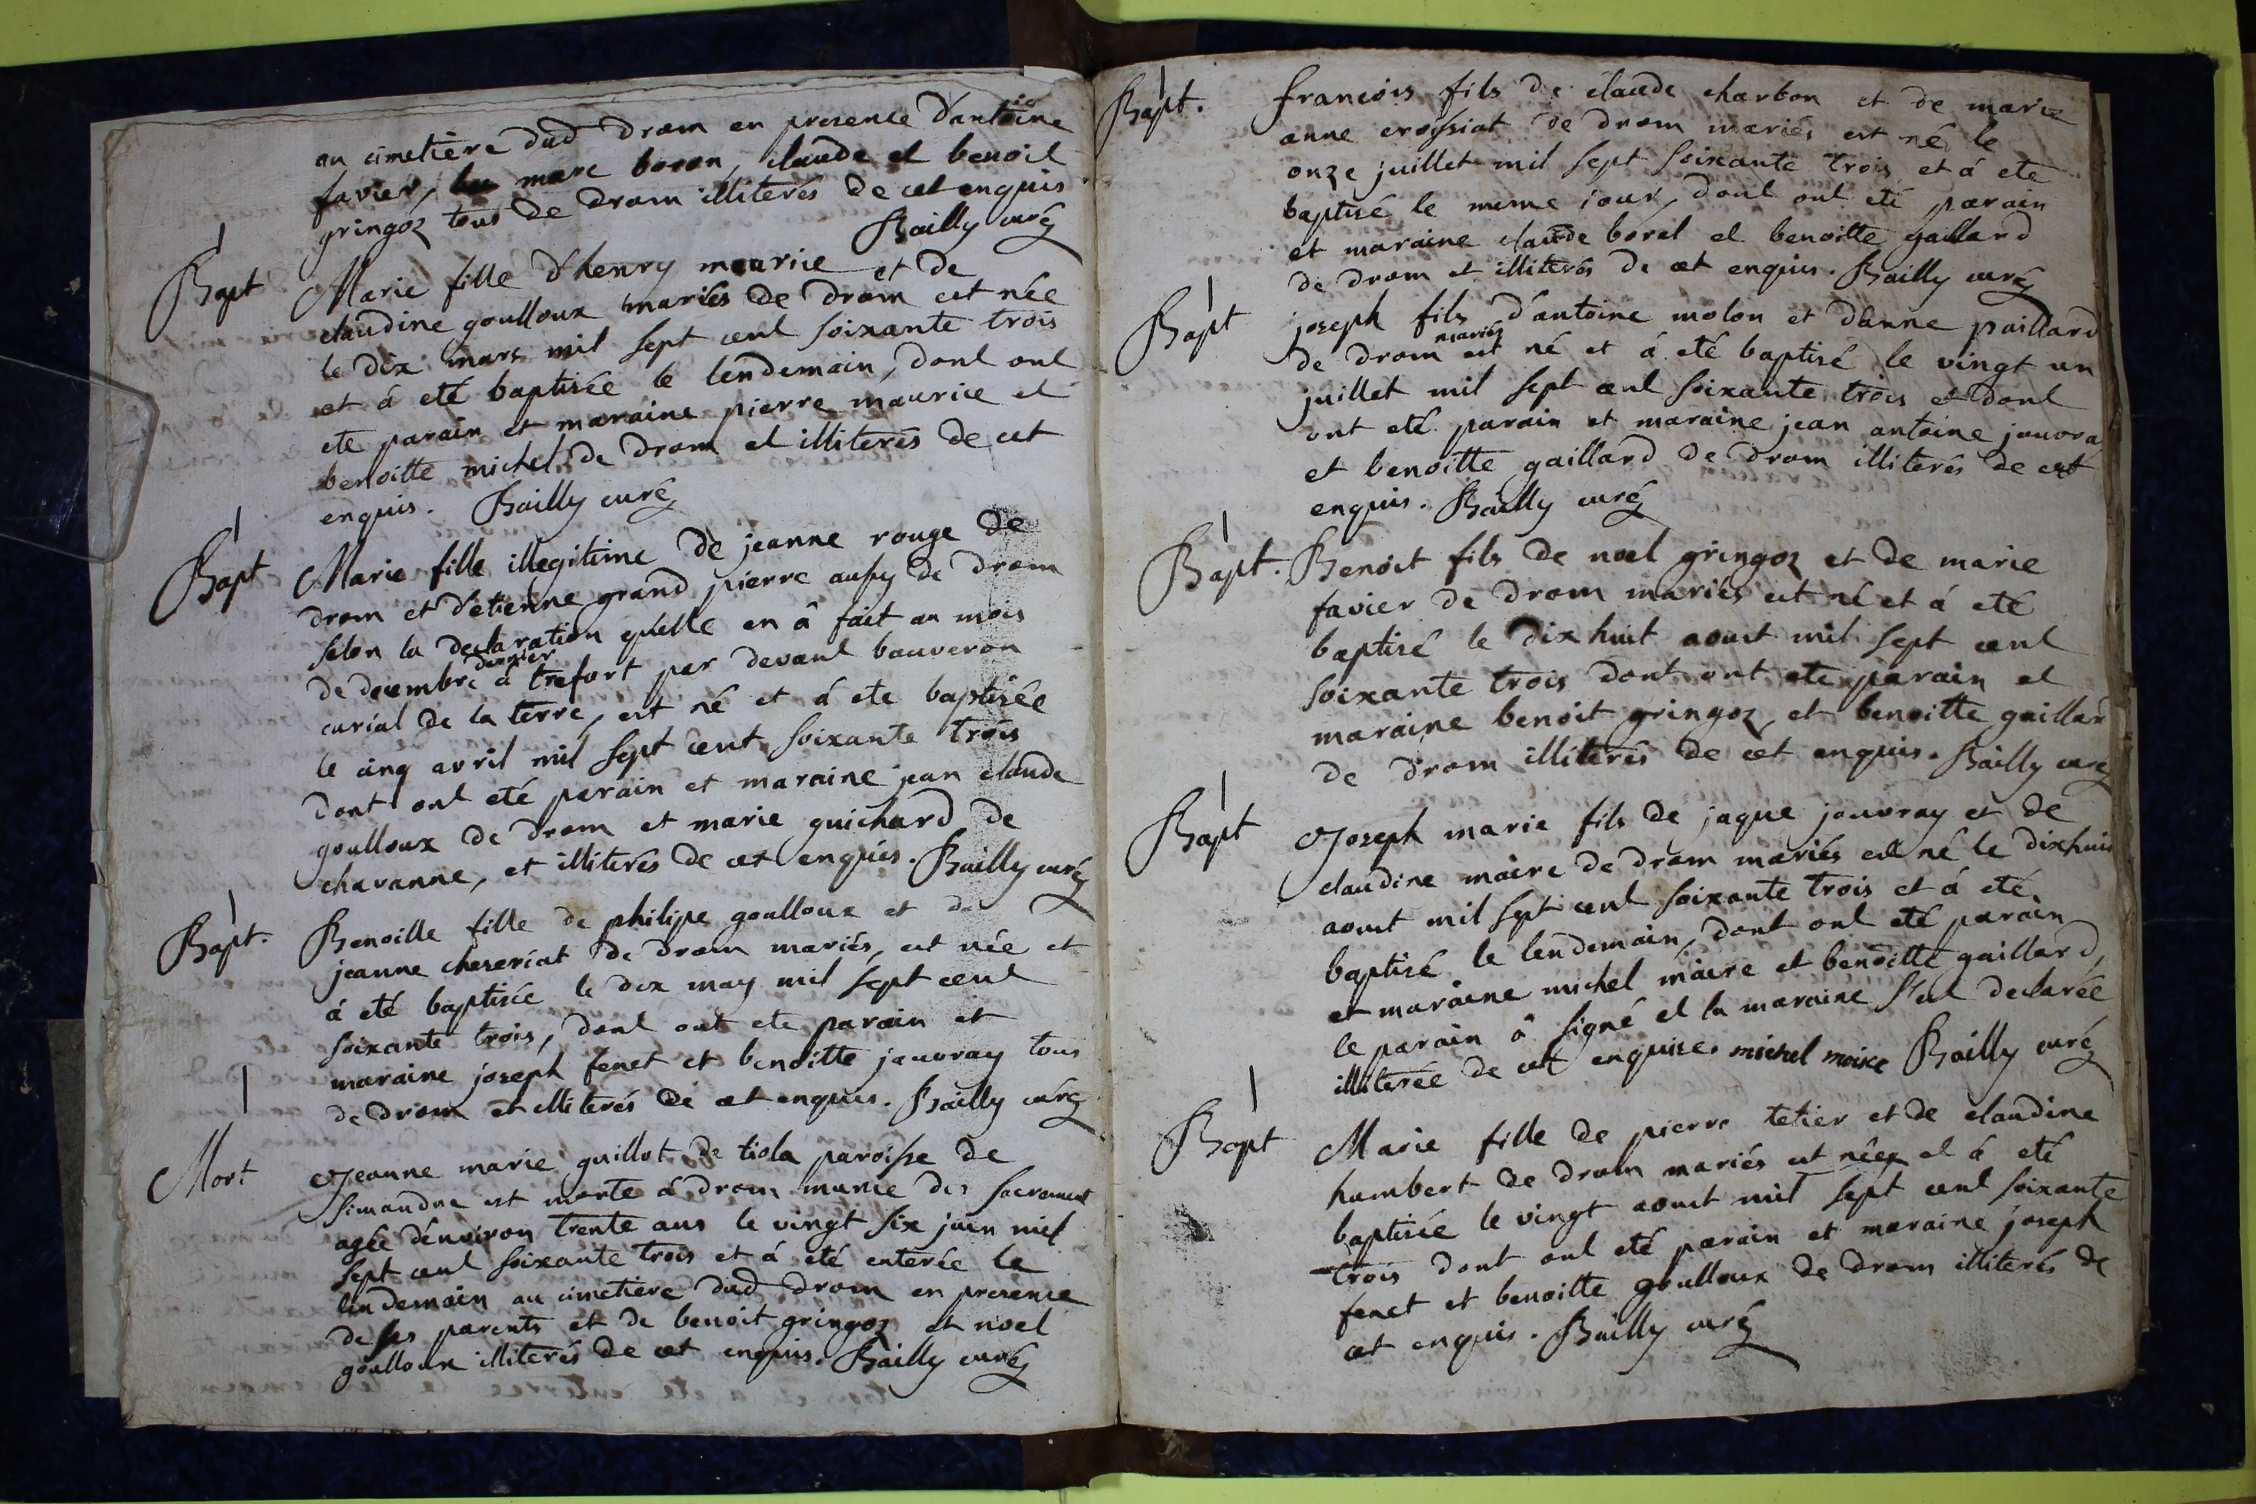 au cimetière dud drom en presence d'antoine
favier, marc boron, claude et benoit
gringoz tous de drom illiterés de cet enquis
Bailly curé
Bapt Marie fille d'henry maurice et de
claudine goulloux mariés de drom est née
le dix mars mil sept cent soixante trois
et á eté baptisée le lendemain, dont ont
ete parain et maraine pierre maurice et
benoitte michel de drom et illiterés de cet
enquis. Bailly curé
Bapt Marie fille illegitime de jeanne rouge de
drom et d'etienne grand pierre aussy de drom
selon la declaration qu'elle en â fait au mois
de decembre dernier a trefort par devant bauveron
curial de la terre, est né et á ete baptisée
le cinq avril mil sept cent soixante trois
dont ont eté parain et maraine jean claude
goulloux de drom et marie guichard de
chavanne, et illiterés de cet enquis. Bailly curé
Bapt. Benoitte fille de philipe goulloux et de
jeanne cheseriat de drom mariés, est née et
á eté baptisée le dix may mil sept cent
soixante trois, dont ont ete parain et
maraine joseph fenet et benoitte jauvray tous
de drom et illiterés de cet enquis. Bailly curé
Mort Jeanne marie guillot de tiola paroisse de
simandre est morte á drom munie des sacrement
agée d'environ trente ans le vingt six juin mil
sept cent soixante trois et á eté enterée le
lendemain au cimetiere dud drom en presence
de ses parents et de benoit gringoz et noel
goulloux illiterés de cet enquis. Bailly curé
Bapt. francois fils de claude charbon et de marie
anne croissiat de drom mariés est né le
onze juillet mil sept soixante trois et á ete
baptisé le meme jour, dont ont eté parain
et maraine claude borel et benoitte gaillard
de drom et illiterés de cet enquis. Bailly curé
Bapt joseph fils d'antoine molon et d'anne paillard
de drom mariés est né et á eté baptisé le vingt un
juillet mil sept cent soixante trois et dont
ont eté parain et maraine jean antoine jauvra
et benoitte gaillard de drom illiterés de cet
enquis. Bailly curé
Bapt. Benoit fils de noel gringoz et de marie
favier de drom mariés est né et á eté
baptisé le dix huit aoust mil sept cent
soixante trois dont ont ete parain et
maraine benoit gringoz, et benoitte gaillar
de drom illiterés de cet enquis. Bailly curé
Bapt Joseph marie fils de jaque jauvray et de
claudine maire de drom mariés est né le dixhuit
aoust mil sept cent soixante trois et á eté
baptisé le lendemain, dont ont eté parain
et maraine michel maire et benoitte gaillard,
le parain â signé et la maraine s'est declarée
illiterée de cet enquise. michel maire Bailly curé
Bapt Marie fille de pierre tetier et de claudine
humbert de drom mariés est née et á eté
baptisée le vingt aoust mil sept cent soixante
trois dont ont eté parain et maraine joseph
fenet et benoitte goulloux de drom illiterés de
cet enquis. Bailly curé